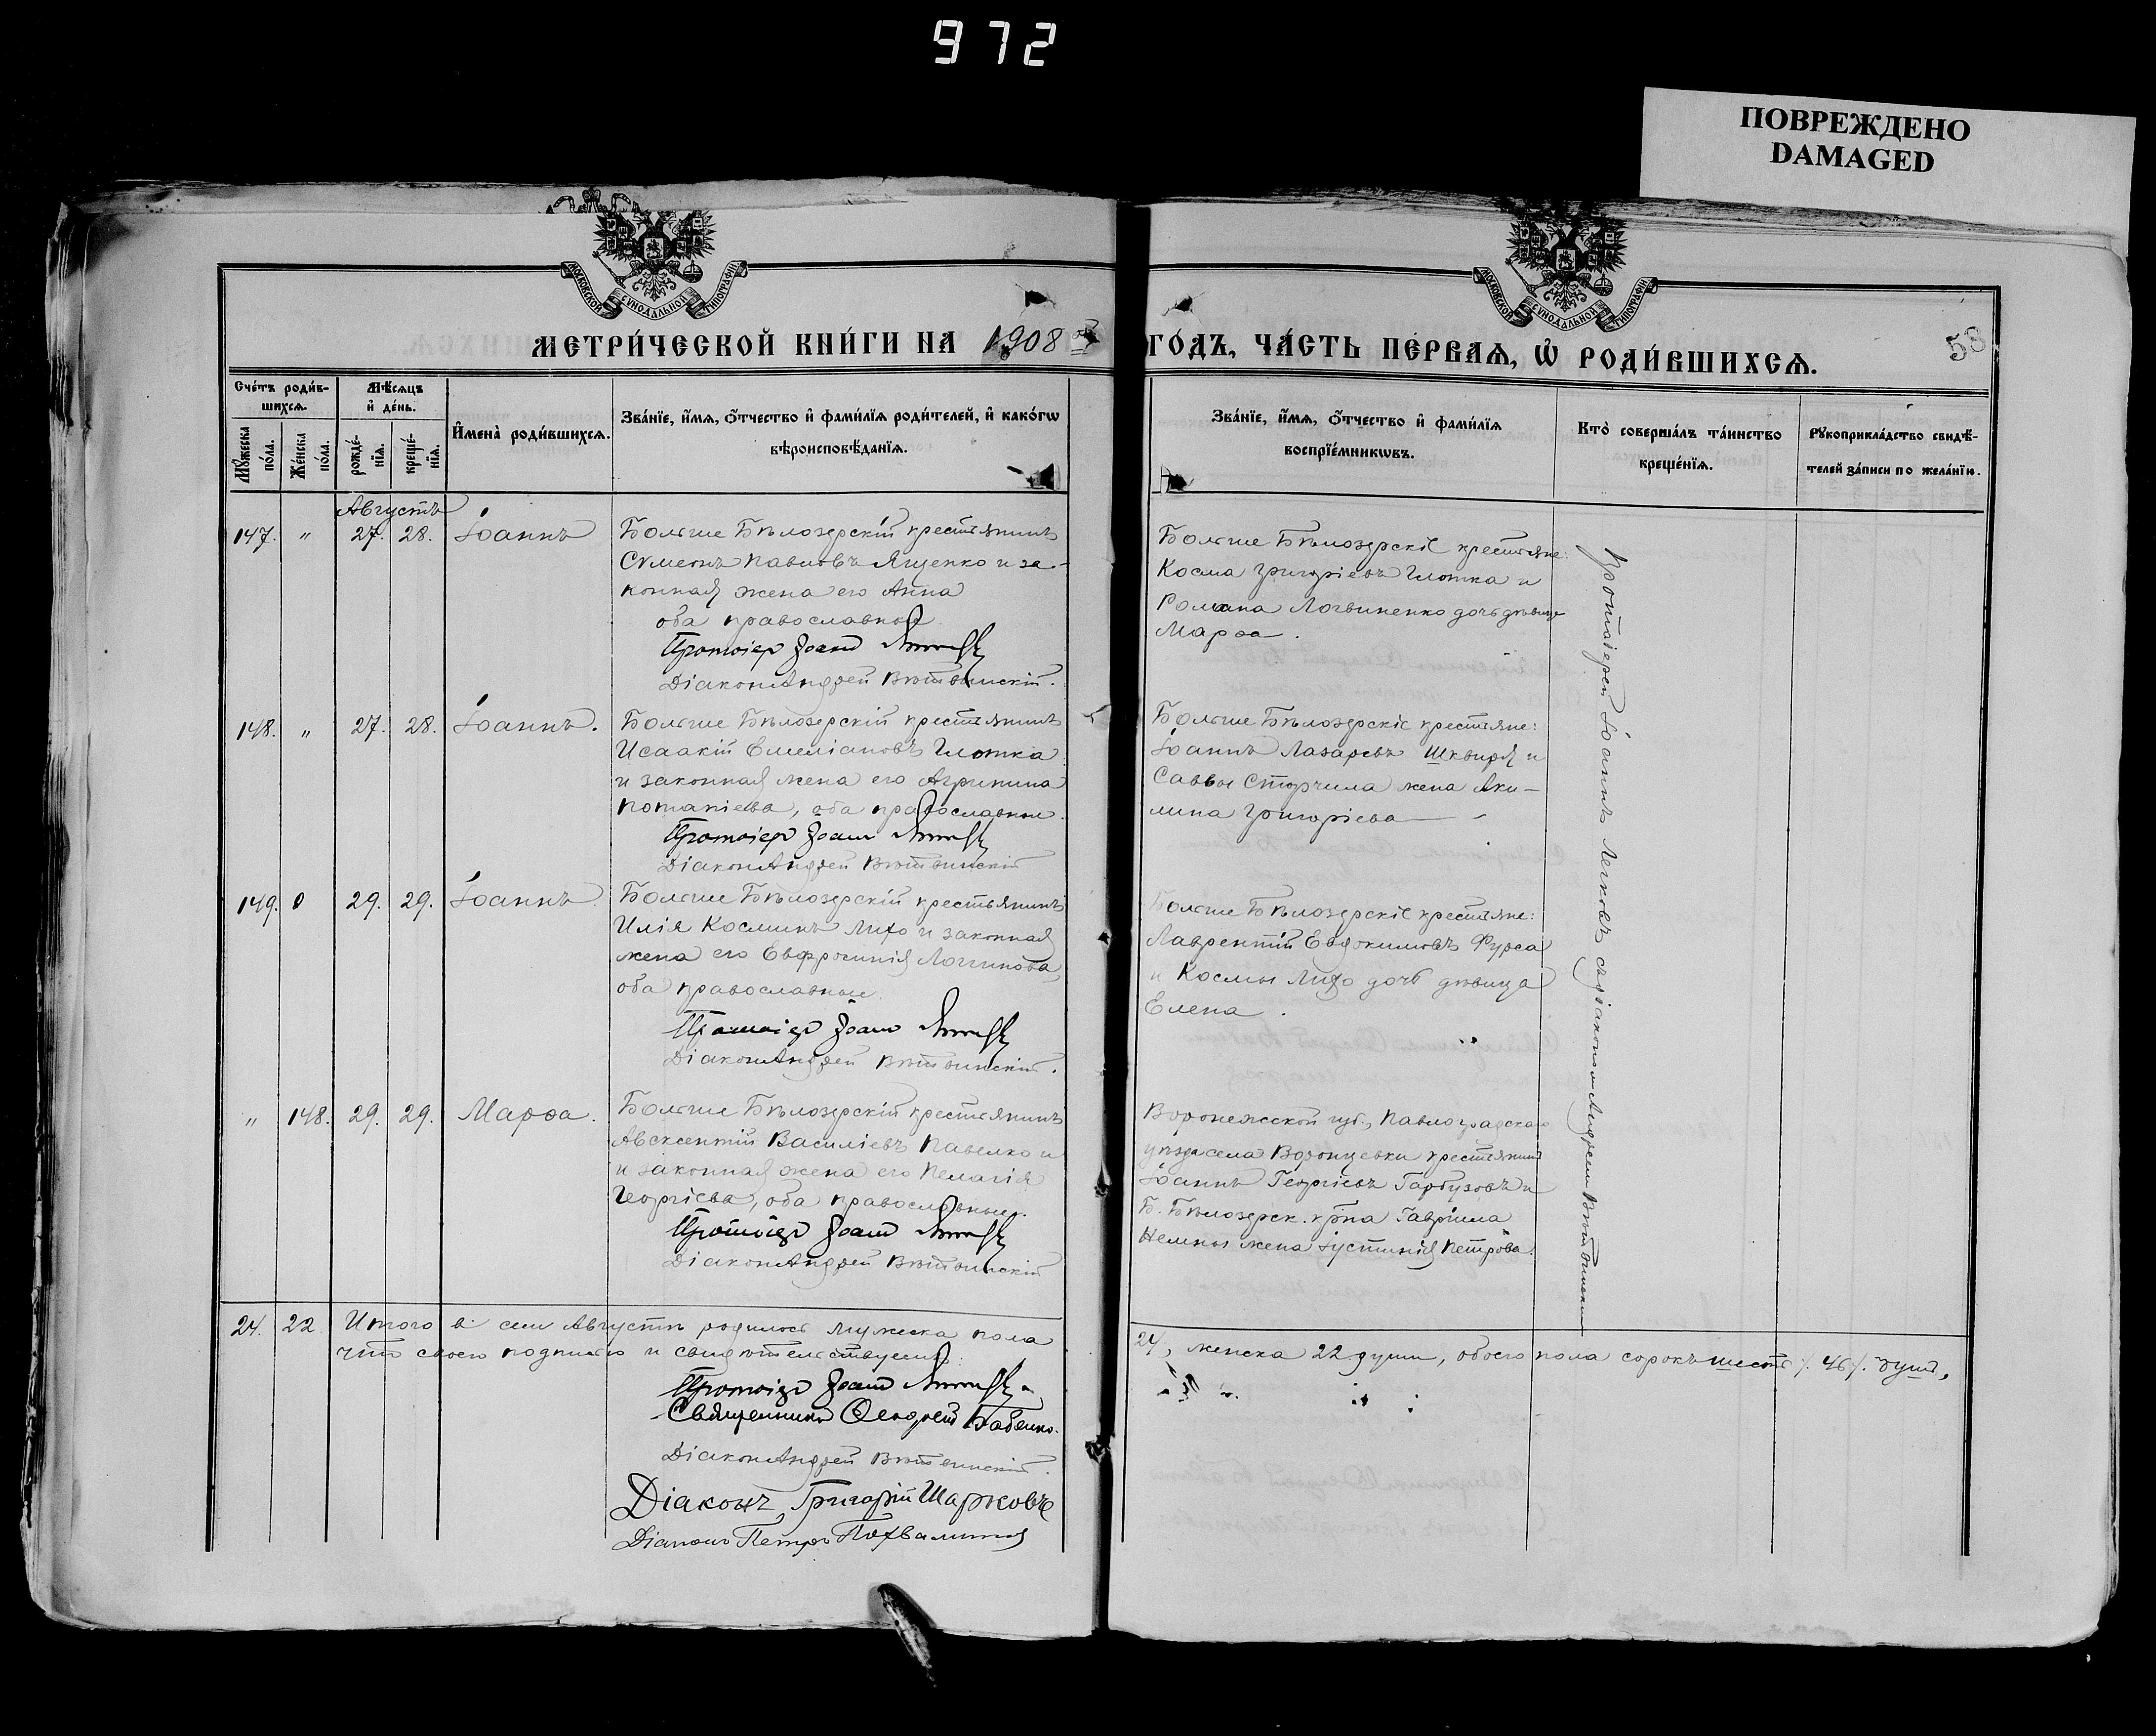 972
ПОВРЕЖДЕНО
DAMAGED
МОСКОВСКОЙ СУНОДАЛЬНОЙ ТИПОГРАФІИ
МОСКОВСКОЙ СУНОДАЛЬНОЙ ТИПОГРАФІИ
МЕТРИ́ЧЕСКОЙ КНИ́ГИ НА 1908 ой
ГО́ДЪ, ЧА́СТЬ ПЕ́РВАѦ, Ѡ РОДИ́ВШИХСѦ.
58
Сче́тъ роди́в-
шихсѧ.
Мꙋжеска по́ла.
Же́нска по́ла.
Мѣ́сѧцъ
и҆ де́нь.
рожде́-
нїѧ.
креще́-
нїѧ.
И҆мена̀ роди́вшихсѧ.
Зва́нїе, и҆́мѧ, ѻ҆́тчество и҆ фами́лїѧ роди́телей, и҆ како́гѡ
вѣроисповѣ́данїѧ.
Зва́нїе, и҆́мѧ, ѻ҆́тчество и҆ фами́лїѧ
воспрїе́мникѡвъ.
Кто̀ соверша́лъ та́инство
креще́нїѧ.
Рꙋкоприкла́дство свидѣ́-
телей за́писи по жела́нїю.
Августъ
147. " 27. 28. Іоаннъ
Больше Бѣлозерскій крестьянинъ
Сѵмеонъ Павловъ Яценко и за-
конная жена его Анна
оба православной
Протоіер Іоанн
Діаконъ Андрей Вѣтвинскій.
Больше Бѣлозерскіе крестьяне:
Косма Григоріевъ Глотка и
Романа Логвиненко дочь дѣвица
Марѳа.
148. " 27. 28. Іоаннъ.
Больше Бѣлозерскій крестьянинъ
Исаакій Емеліановъ Глотка
и законная жена его Агрипина
Потапіева, оба православные.
Протоіер Іоанн
Діаконъ Андрей Вѣтвинскій
Больше Бѣлозерскіе крестьяне:
Іоаннъ Лазаревъ Шквиря и
Саввы Сторчила жена Аки-
лина Григоріева
149. 0 29. 29. Іоаннъ.
Больше Бѣлозерскій крестьянинъ
Илія Косминъ Лихо и законная
жена его Евфросинія Логгинова,
оба православные.
Протоіер Іоанн
Діаконъ Андрей Вѣтвинскій.
Больше Бѣлозерскіе крестьяне:
Лаврентій Евдокимовъ Фурса
и Космы Лихо дочь дѣвица
Елена.
" 148. 29. 29. Марѳа.
Больше Бѣлозерскій крестьянинъ
Авксентій Василіевъ Павелко и
и законная жена его Пелагія
Георгіева, оба православные.
Протоіер Іоанн
Діаконъ Андрей Вѣтвинскій
Воронежской губ., Павлоградскаго
уѣзда села Воронцевки крестьянинъ
Іоаннъ Георгіевъ Гарбузовъ и
Б. Бѣлозерск. кр-на Гавріила
Немны жена Іустинія Петрова.
Протоіерей Іоаннъ Легковъ съ діакономъ Андреемъ Вѣтвинскимъ
24. 22. Итого въ семъ Августѣ родилось мужеска пола
24, женска 22 души, обоего пола сорокъ шесть /. 46 /. душъ,
что своею подписью и свидѣтельствуемъ:
Протоіер Іоанн
Священникъ Ѳеодосій Бабенко.
Діаконъ Андрей Вѣтвинскій.
Діаконъ Григорій Шарковъ
Діаконъ Петръ Похвалитый